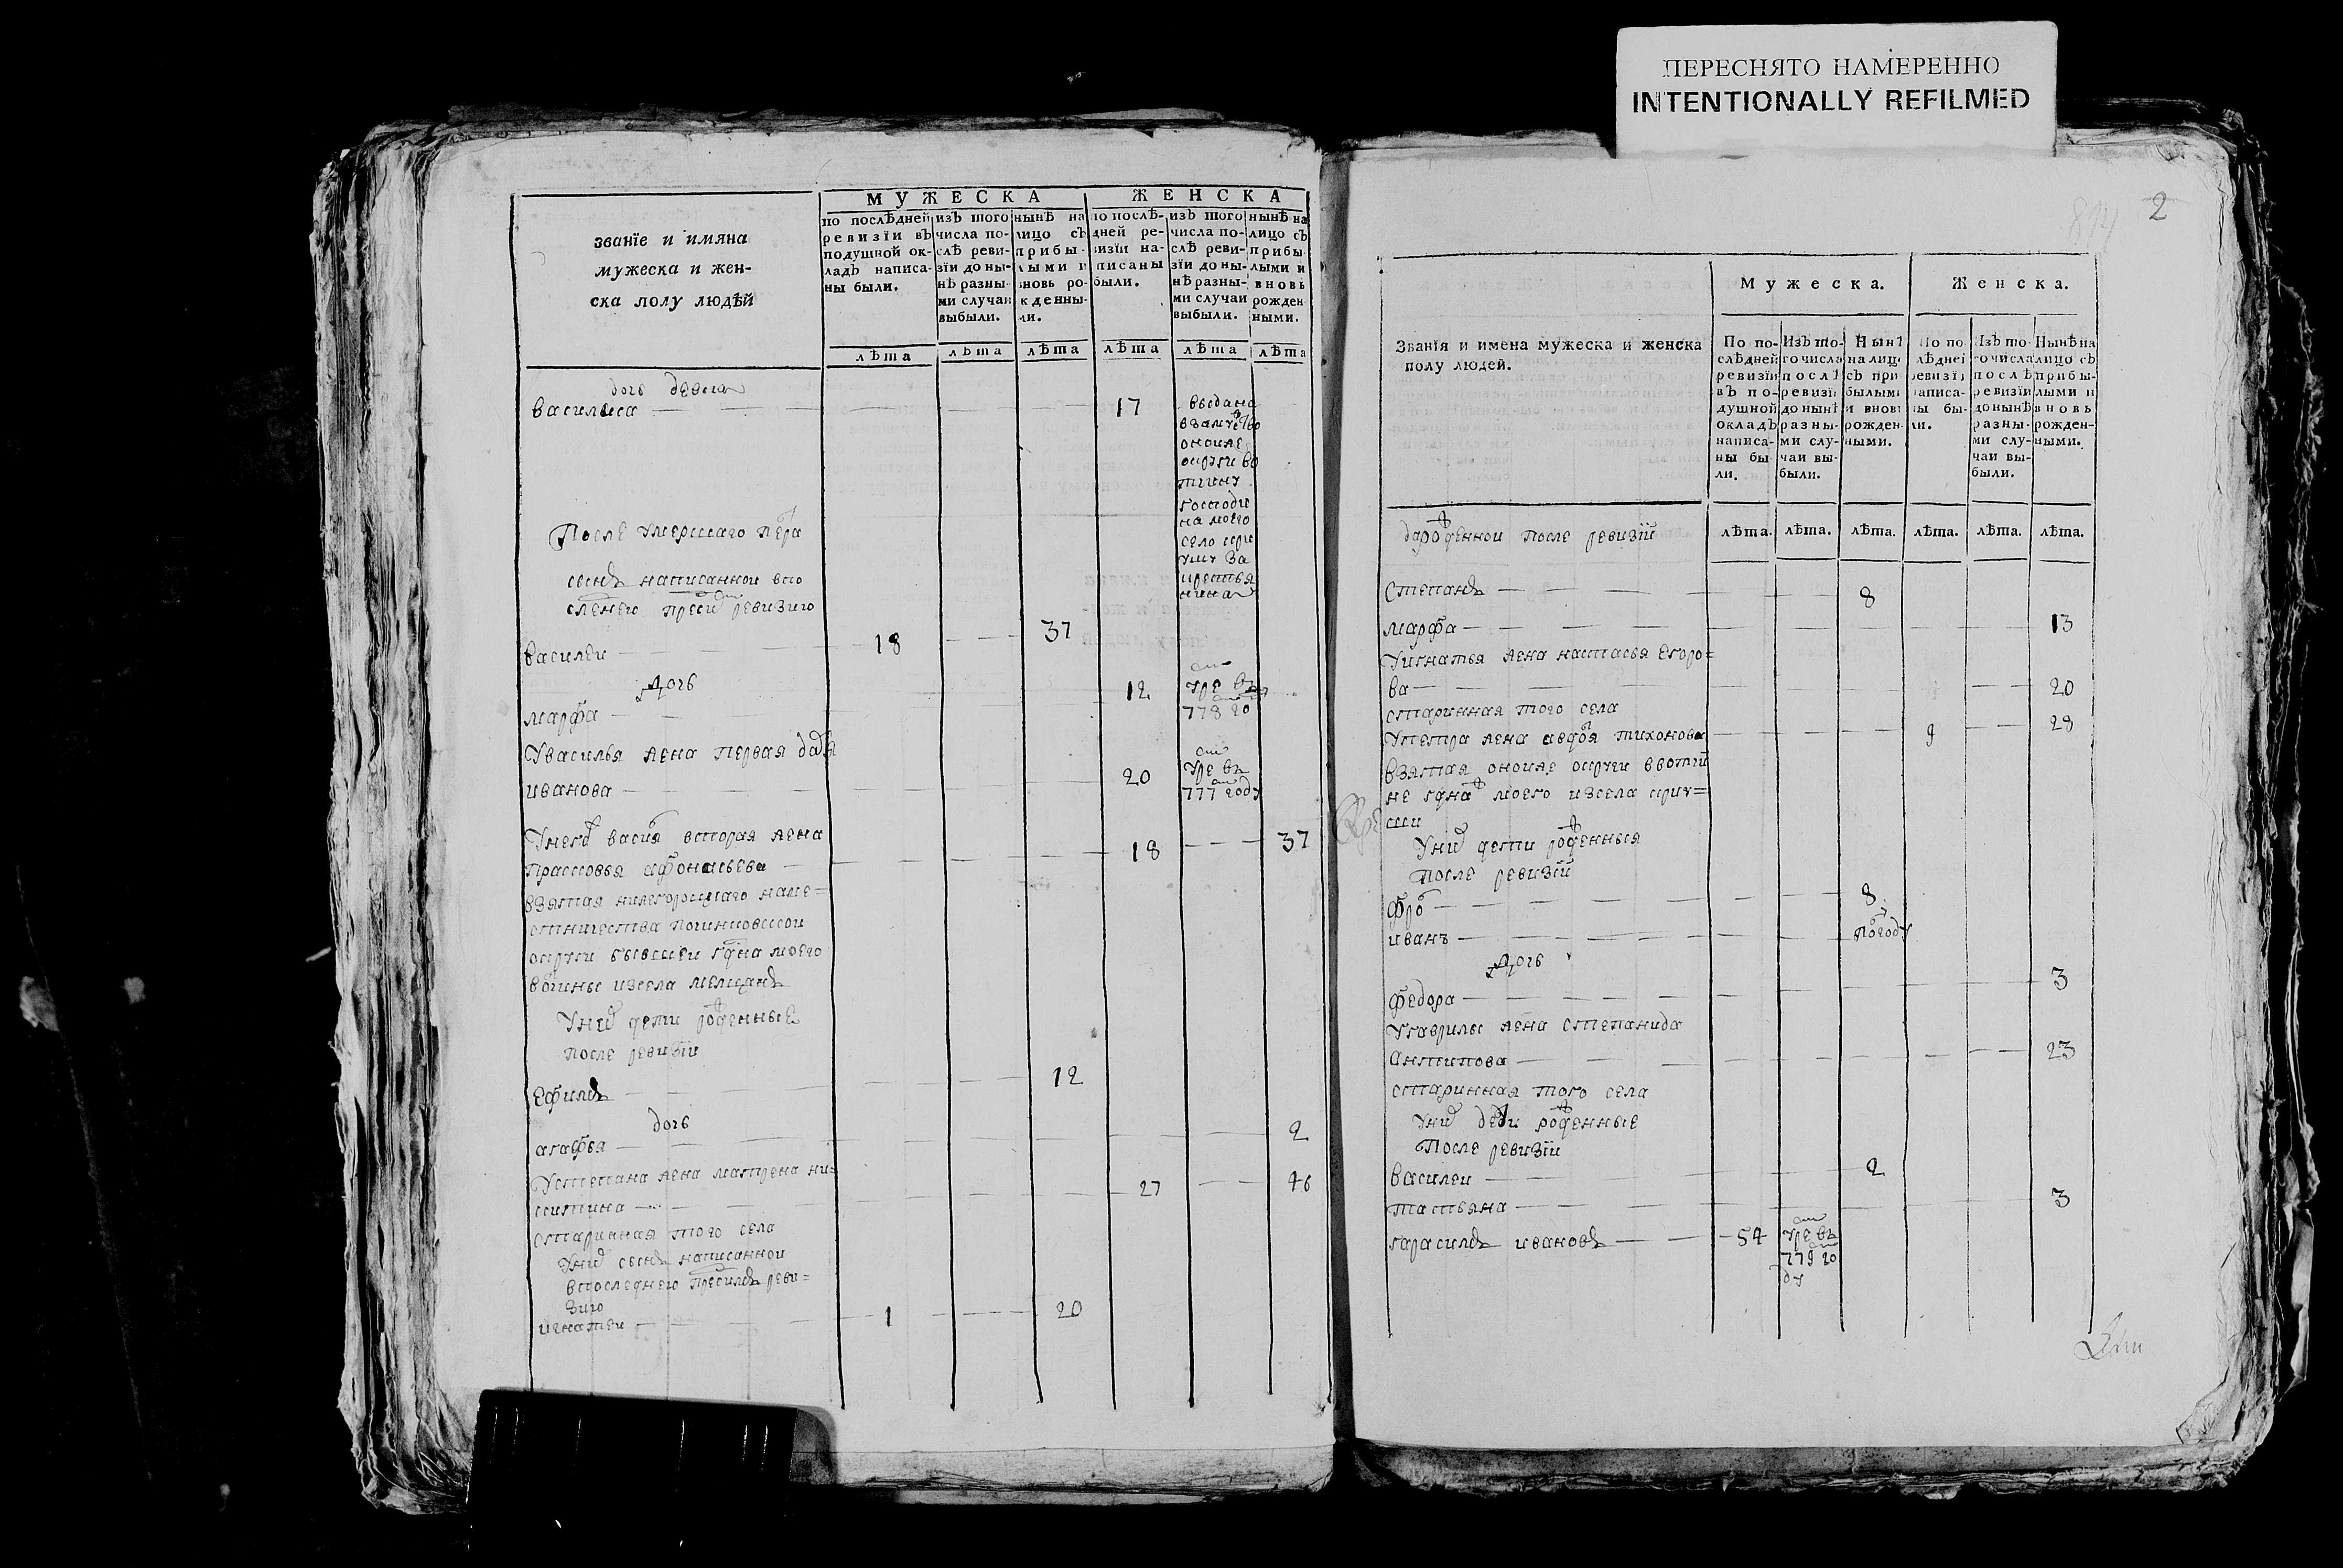 ПЕРЕСНЯТО НАМЕРЕННО
INTENTIONALLY REFILMED
званїе и имяна
мужеска и жен-
ска полу людѣй
МУЖЕСКА
ЖЕНСКА
по послѣдней
ревизїи въ
подушной ок-
ладъ написа-
ны были.
изъ того
числа по-
слѣ реви-
зїи до ны-
нѣ разны-
ми случаи
выбыли.
нынѣ на
лицо съ
прибы-
лыми и
вновь ро-
жденны-
ми.
по послѣ-
дней ре-
визїи на-
писаны
были.
изъ того
числа по-
слѣ реви-
зїи до ны-
нѣ разны-
ми случаи
выбыли.
нынѣ на
лицо съ
прибы-
лыми и
вновь
рожден-
ными.
лѣта лѣта лѣта лѣта лѣта лѣта
дочь девка
василиса 17
выдана
в замуство
онои же
округи во
тчину
господи
на моего
село
за
крестья
нина
После умершаго петра
сынъ написаннои впо
следнею пред сим ревизию
василеи 18 37
дочь
марфа 12
умре въ
778 го
Увасилья жена первая дарья
иванова 20
умре въ
777 году
Унего василя вторая жена
Прасковья афонасьева 18 37
взятая нижегороцкаго наме=
стничества починковскои
округи бывшеи гдна моего
вотчины изсела
Уних дети рожденные
после ревизїи
Ефимъ 12
дочь
агафья 2
Устепана жена матрена ни=
китина 27 46
старинная того села
Уних сынъ написаннои
впоследнею пред симъ реви=
зию
игнатеи 1 20
2
814
Званїя и имена мужеска и женска
полу людей.
Мужеска.
Женска.
По по-
слѣдней
ревизїи
въ по-
душной
окладъ
написа-
ны бы
ли.
Изъ то-
го числа
послѣ
ревизїи
до нынѣ
разны-
ми слу-
чаи вы-
были.
Нынѣ
на лицо
съ при
былыми
и вновь
рожден
ными.
По по
слѣдней
ревизїи
написа-
ны бы-
ли.
Изъ то
го числа
послѣ
ревизїи
до нынѣ
разны-
ми слу-
чаи вы-
были.
Нынѣ на
лицо съ
прибы-
лыми и
вновь
рожден-
ными.
лѣта. лѣта. лѣта. лѣта. лѣта. лѣта.
да рожденнои после ревизїи
Степанъ 8
марфа 13
Уигнатья жена настасья Егоро=
ва 20
старинная того села
Упетра жена авдотя тихонова 9 28
взятая онои же округи ввотчи
не гдна моего изсела
Уних дети рожденныя
после ревизїи
Фро 8
иванъ полгоду
дочь
федора 3
Угаврилы жена степанида
Антипова 23
старинная того села
Уних дети рожденные
После ревизїи
василеи 2
татьяна 3
гарасимъ ивановъ 54
умре въ
779 го
ду